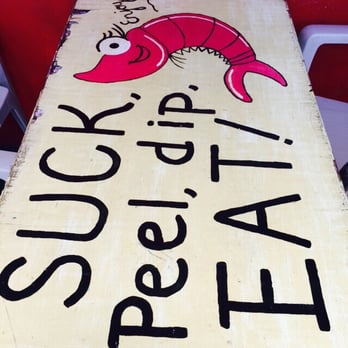 SUCK,
Peel, dip,
EAT!